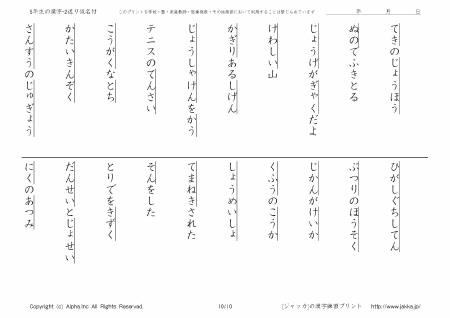 5年生の漢字-2送り仮名付
このプリントを学校・塾・家庭教師・医療機関・その他施設において利用することは禁じられています
年 月 日
てきのじょうほう
ぬのでふきとる
じょうげがぎゃくだよ
けわしい山
かぎりあるしげん
じょうしゃけんをかう
テニスのてんさい
こうがくなとち
かたいきんぞく
さんすうのじゅぎょう
ひがしぐちしてん
ぶつりのほうそく
じかんがけいか
くふうのこうか
しょうめいしょ
てまねきされた
そんをした
とりでをきずく
だんせいとじょせい
にくのあつみ
Copyright (c) Alpha.Inc All Rights Reserved.
10/10
[ジャッカ]の漢字練習プリント http://www.jakka.jp/